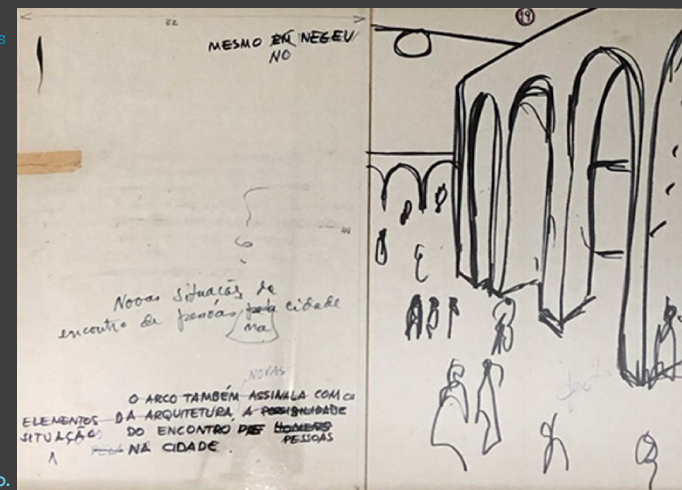 32
MESMO EM NEGEV
NO
19
44
Novas situações de
encontro de pessoas pela cidade
na
NOVAS
O ARCO TAMBÉM ASSINALA COMO
ELEMENTOS DA ARQUITETURA, A POSSIBILIDADE
SITUAÇÃO DO ENCONTRO DE HOMENS
PESSOAS
NA CIDADE